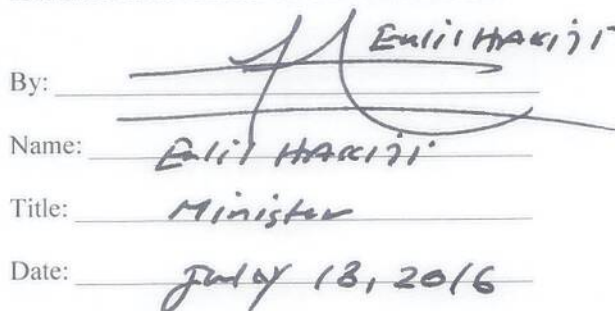 Enlil HAKIJI
By:
Name: Enlil HAKIJI
Title: Minister
Date: July 13, 2016